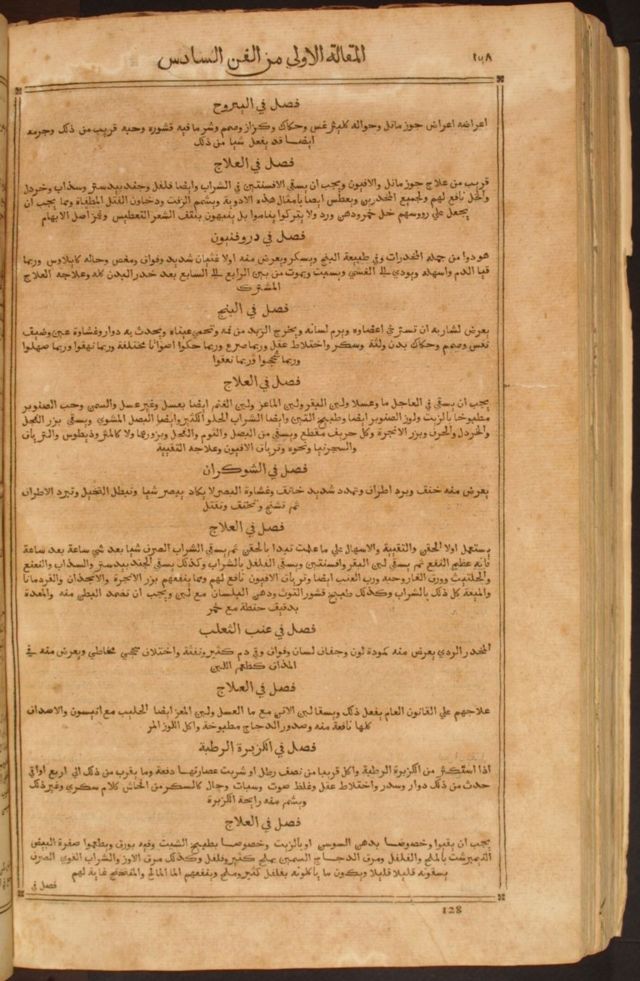 ١٢٨
المقالة الاولي من الفن السادس
فصل في اليبروح
اعراضه اعراض جوز ماثل وحواله كليثرغس وحكاك وكزاز وصمم وشر ما فيه قشوره وحبه قريب من ذلك وجرمه
ايضا قد يفعل شيا من ذلك
فصل في العلاج
قريب من علاج جوز ماثل والافيون ويجب ان يسقي الافسنتين في الشراب وايضا فلفل وجندبيدستر وسذاب وخردل
والخل نافع لهم ولجميع المخدرين ويعطس ايضا بامثال هذه الادوية ويشمم الزفت ودخاون الفتل المطفاة ومما يجب ان
يجعل علي روسهم خل خمر ودهن ورد ولا يتركوا يناموا بل ينبهون بنتف الشعر والتعطيس وغمز اصل الابهام
فصل في دروفنيون
هو دوا من جملة المخدرات وفي طبيعة البنج ويسكر ويعرض منه اولا غثيان شديد وفواق ومغص وحاله كايلاوس وربما
قيا الدم واسهله ويودي الي الغشي ويسبت ويموت من بين الرابع الي السابع بعد خدر البدن كله وعلاجه العلاج
المشترك
فصل في البنج
يعرض لشاربه ان تسترخي اعضاوه ويرم لسانه ويخرج الزبد من فمه وتحمر عيناه ويحدث به دوار وغشاوة عين وضيق
نفس وصمم وحكاك بدن ولثة وسكر واختلاط عقل وربما صرع وربما حكوا اصواتا مختلفة وربما نهقوا وربما صهلوا
وربما شحجوا وربما نعقوا
فصل في العلاج
يجب ان يسقي في العاجل ما وعسلا ولبن البقر ولبن الماعز ولبن الغنم ايضا بعسل وغير عسل والسمن وحب الصنوبر
مطبوخا بالزيت ولوز الصنوبر ايضا وطبيخ التين وايضا الشراب الحلو الكثير وايضا البصل المشوي ويسقي بزر الفجل
والخردل والحرف وبزر الانجرة وكل حريف مقطع ويسقي من البصل والثوم والفجل وبزورها ولا كالمثروذيطوس والترياق
والسجزنيا ونحوه وترياق الافيون وعلاجه التقيية
فصل في الشوكران
يعرض منه خنق وبرد اطراف وتمدد شديد خانق وغشاوة البصر لا يكاد يبصر شيا وتبطل التخيل وتبرد الاطراف
ثم تشنج وتخنق وتقتل
فصل في العلاج
يستعمل اولا الحقن والتقيية والاسهال علي ما علمت تبدا بالحقن ثم يسقي الشراب الصرف شيا بعد شي ساعة بعد ساعة
فانه عظيم النفع ثم يسقي لبن البقر وافسنتين ويسقي الفلفل بالشراب وكذلك يسقي الجندبيدستر والسذاب والنعنع
والحلتيت وورق الغار وحبه ورب العنب ايضا وترياق الافيون نافع لهم ومما ينفعهم بزر الانجرة والانجدان والقردمانا
والميعة كل ذلك بالشراب وكذلك طبيخ قشور التوث ودهن البلسان مع لبن ويجب ان تضمد البطن منه والمعدة
بدقيق حنطة مع خمر
فصل في عنب الثعلب
المخدر الردي يعرض منه كمودة لون وجفاف لسان وفواق وقي دم كثير ونفثه واختلاف سحجي مخاطي ويعرض منه في
المذاق كطعم اللبن
فصل في العلاج
علاجهم علي القانون العام يفعل ذلك ويسقا لبن الاتن مع ما العسل ولبن المعز ايضا الحليب مع انيسون والاصداف
كلها نافعة منه وصدور الدجاج مطبوخة واكل اللوز المر
فصل في الكزبرة الرطبة
اذا استكثر من الكزبرة الرطبة واكل قريبا من نصف رطل او شربت عصارتها دفعة وما يقرب من ذلك الي اربع اواقي
حدث من ذلك دوار وسدر واختلاط عقل وغلظ صوت وسبات وحال كالسكر من الحاش كلام سكري وغير ذلك
ويشم منه رايحة الكزبرة
فصل في العلاج
يجب ان يقيوا وخصوصا بدهن السوسن او بالزيت وخصوصا بطبيخ الشبت وفيه بورق ويطعموا صفرة البيض
النيمرشت بالملح والفلفل ومرق الدجاج السمين بملح كثير وفلفل وكذلك مرق الاوز والشراب القوي الصرف
يسقونه قليلا قليلا ويكون ما ياكلونه بفلفل كثير وملح وينفعهم الما المالح والمفتصح غاية لهم
فصل في
128